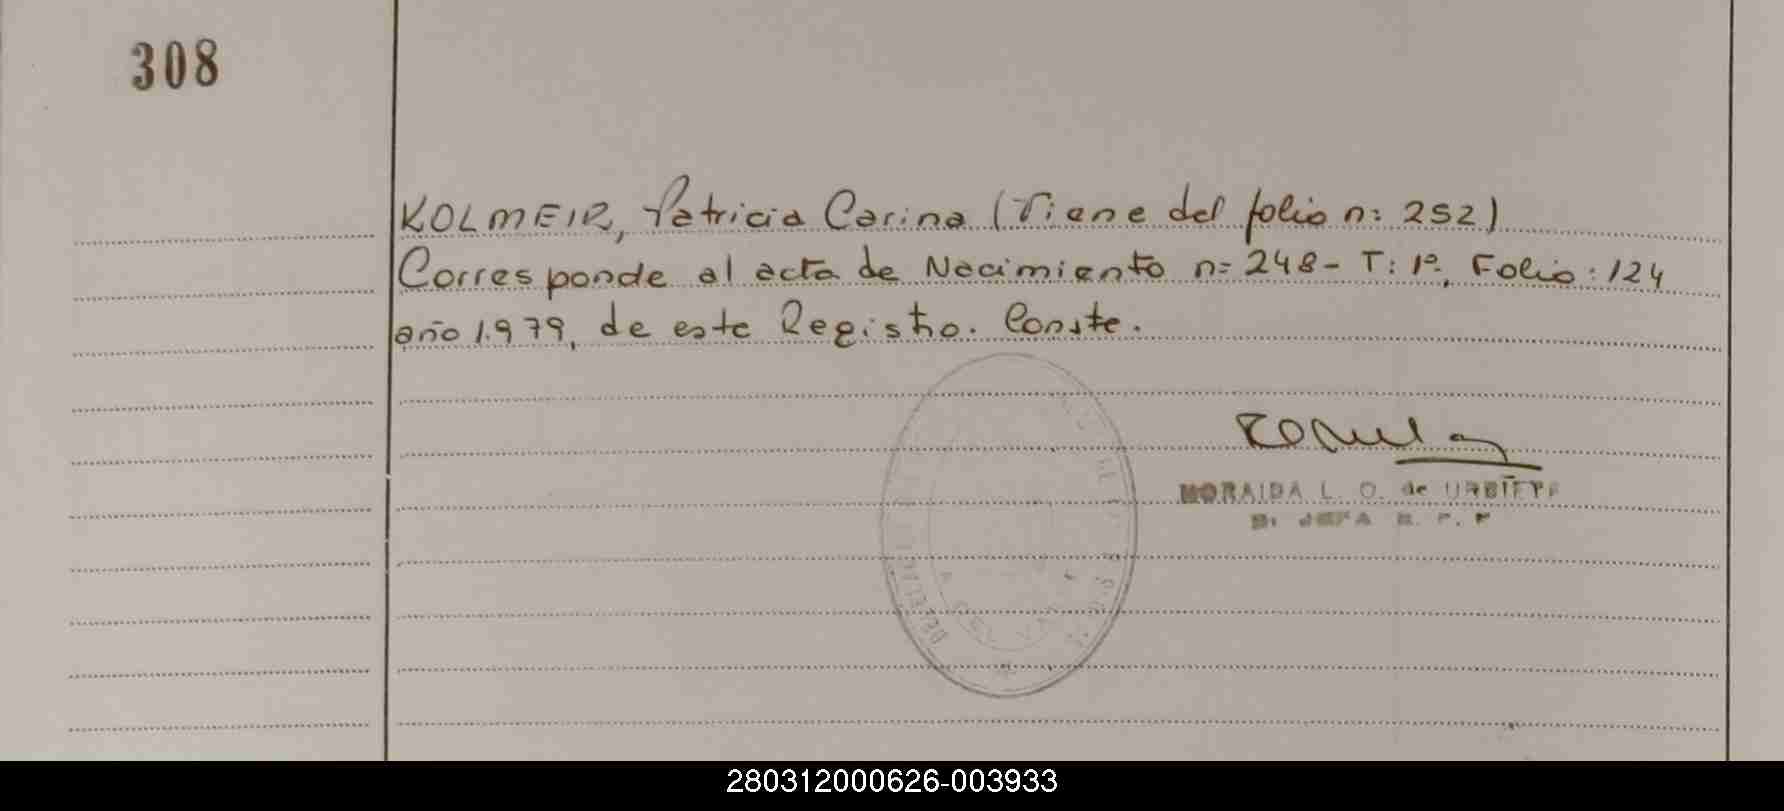 308
KOLMEIR, Patricia Carina (Viene del folio n: 252)
Corresponde al acta de Nacimiento n= 248- T: 1º. Folio: 124
año 1.979, de este Registro. Conste.
MORAIDA L. O. de URBIETA
JEFA R. P. P
280312000626-003933